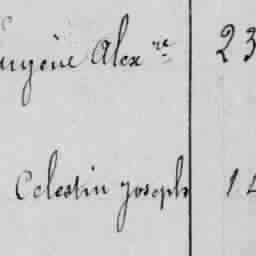 Eugène Alex.re 23
Celestin joseph 14